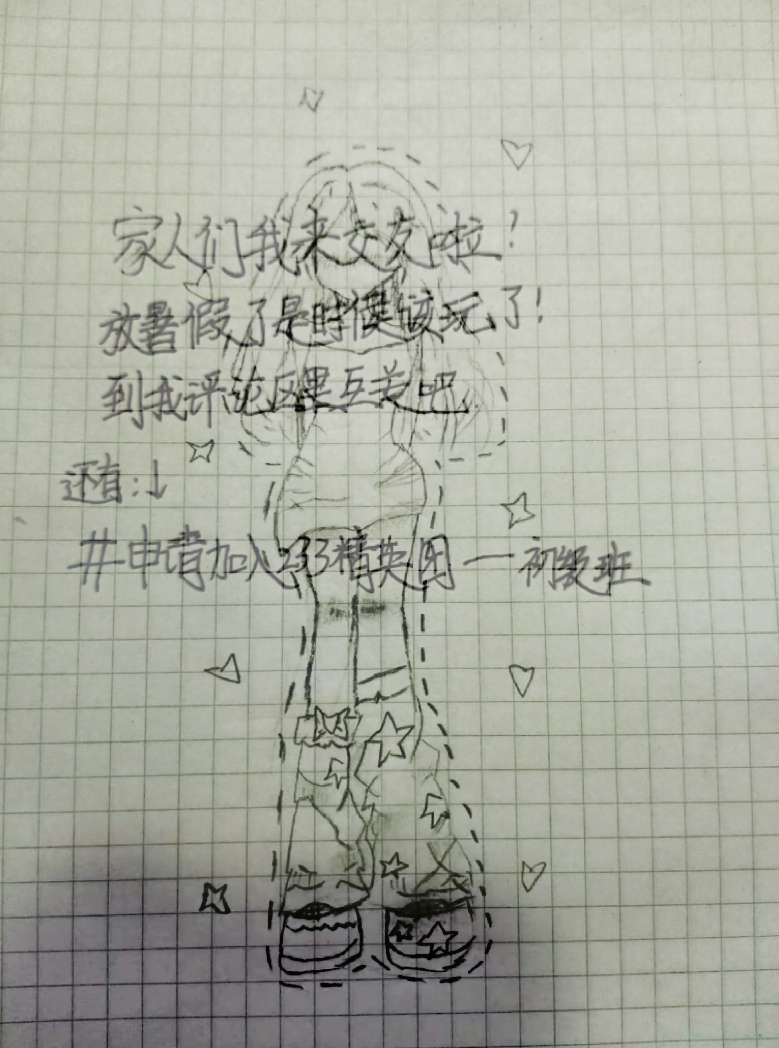 家人们我来交友啦！
放暑假了是时候该玩了！
到我评论区里互关吧
还有：↓
#申请加入233精英团一初级班